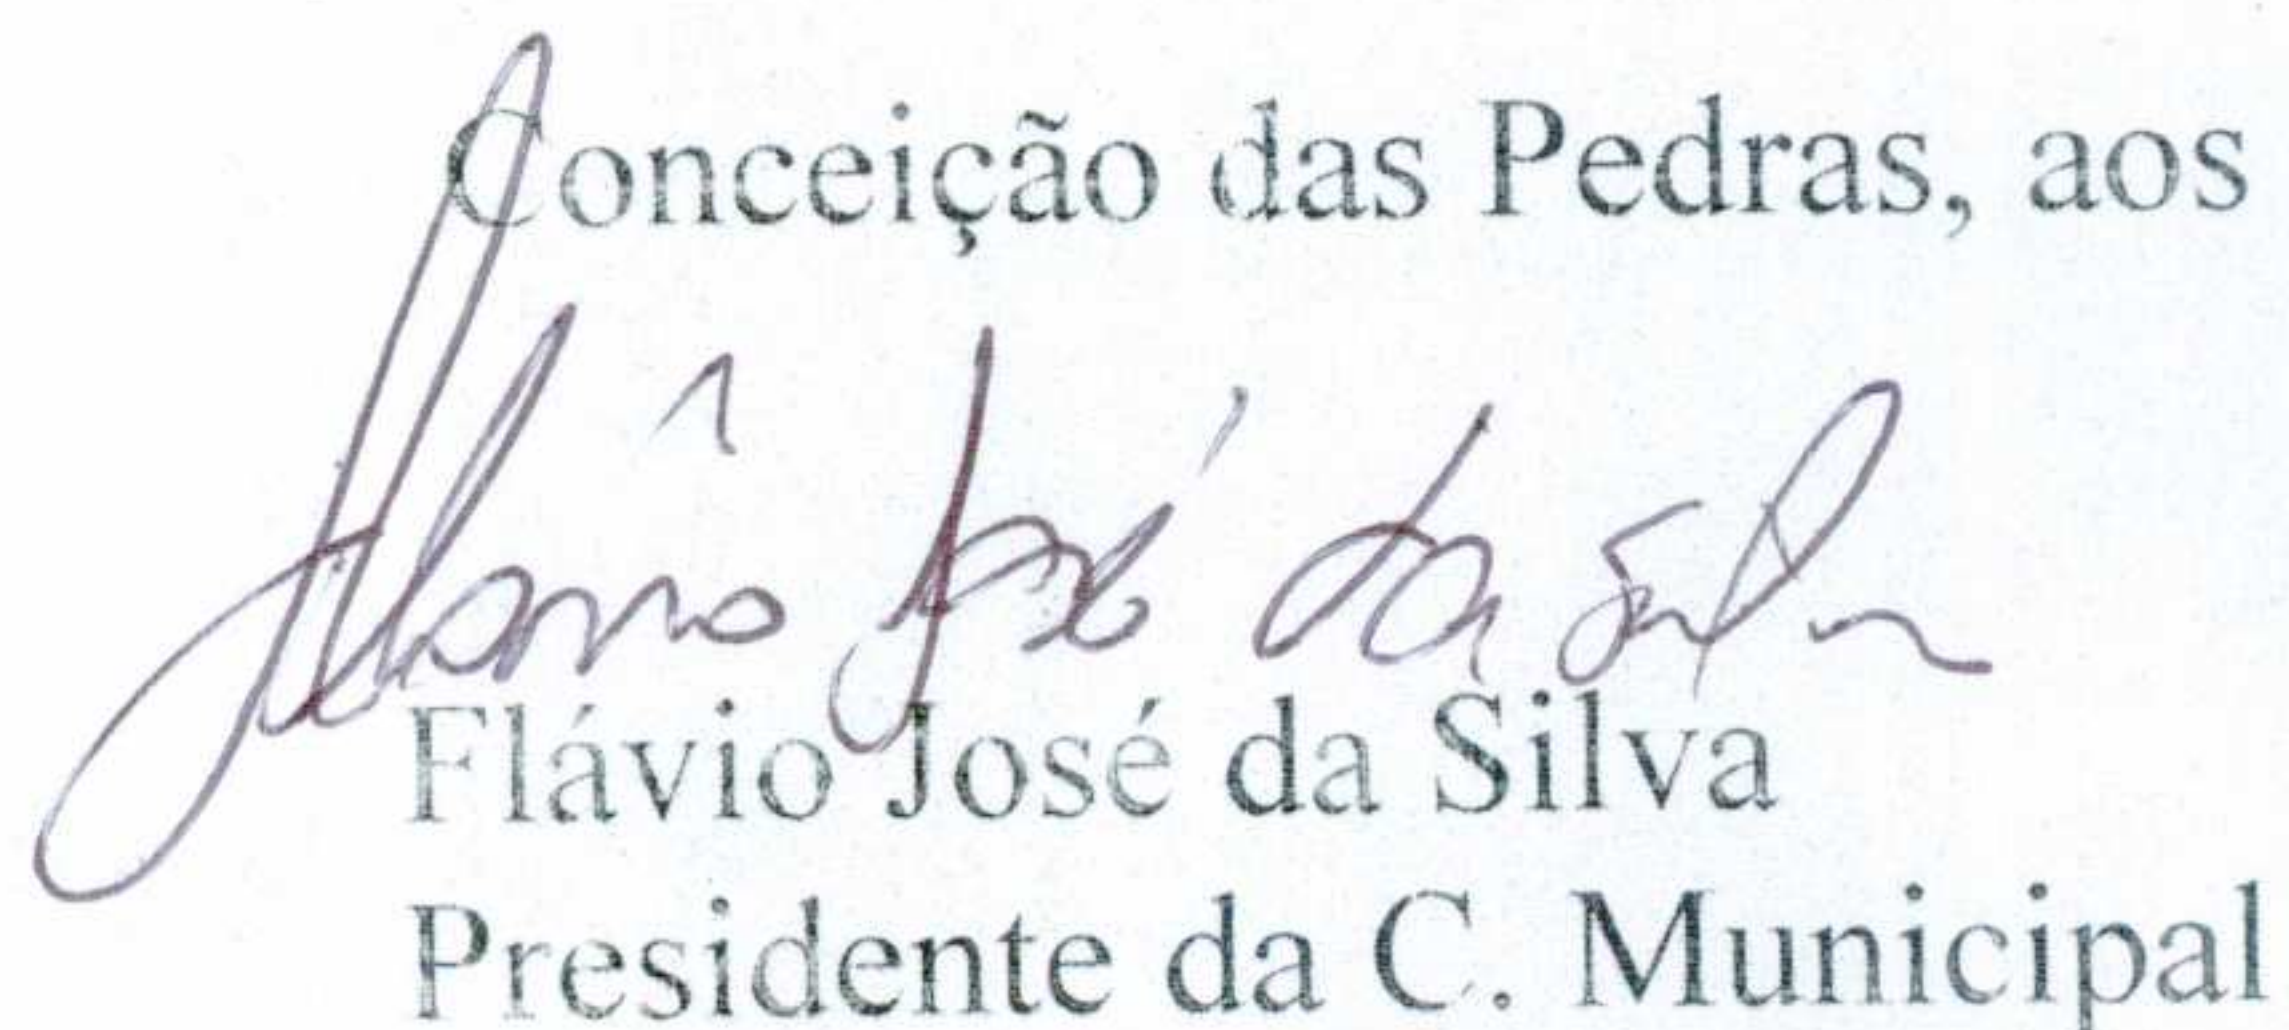 Conceição das Pedras, aos
Flávio José da Silva
Flávio José da Silva
Presidente da C. Municipal